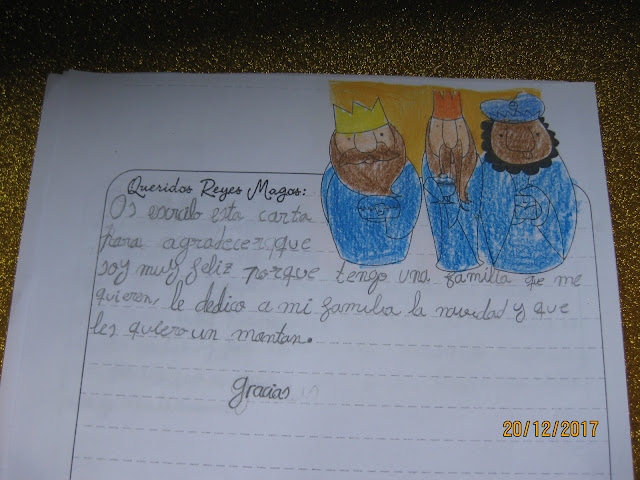 Queridos Reyes Magos:
Os escribo esta carta
para agradecer que
soy muy feliz porque tengo una familia que me
quieren, le dedico a mi familia la navidad y que
les quiero un montan.
gracias
20/12/2017